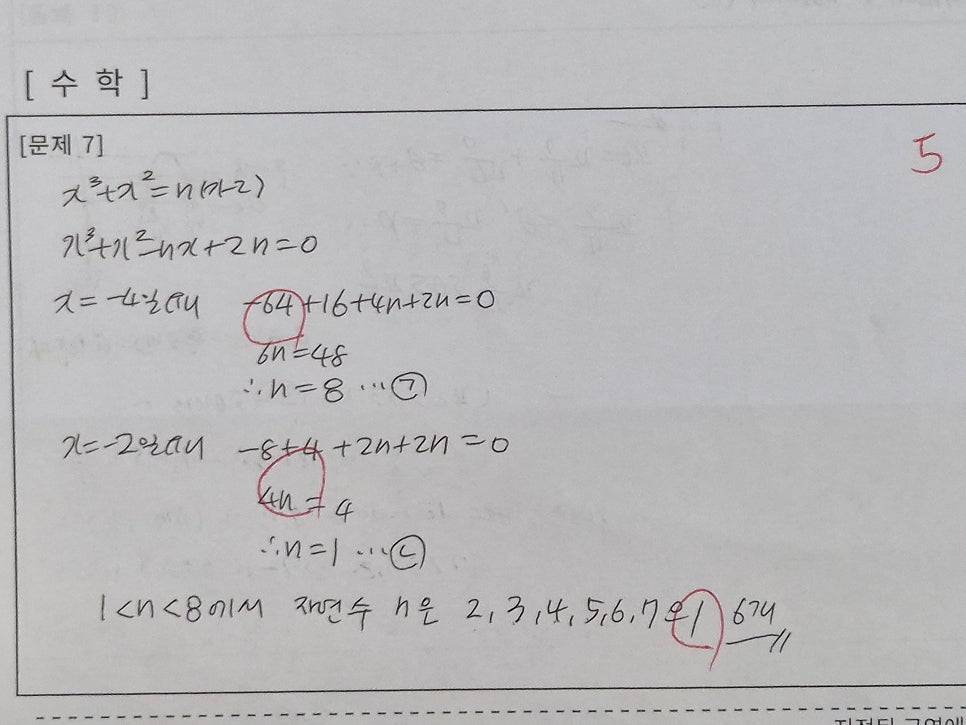 [ 수 학 ]
[문제 7]
5
x³+x²=n(x-2)
x³+x²-nx+2n=0
x=-4일 때 -64+16+4n+2n=0
6n=48
∴n=8 … ㉠
x=-2일 때 -8+4+2n+2n=0
4n=4
∴n=1 … ㉡
1<n<8에서 자연수 n은 2,3,4,5,6,7으로 6개